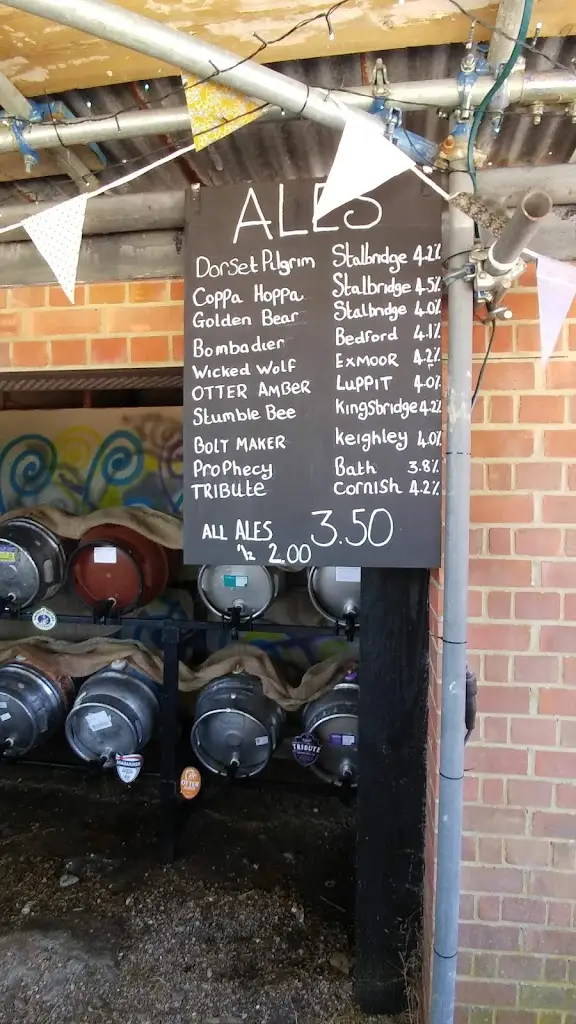 ALES
Dorset Pilgrim Stalbridge 4.2%
Coppa Hoppa Stalbridge 4.5%
Golden Bear Stalbridge 4.0%
Bombadier Bedford 4.1%
Wicked Wolf Exmoor 4.2%
OTTER AMBER LUPPIT 4.0%
Stumble Bee Kingsbridge 4.2%
BOLT MAKER Keighley 4.0%
Prophecy Bath 3.8%
TRIBUTE Cornish 4.2%
ALL ALES 3.50
1/2 2.00
TRIBUTE
OTTER